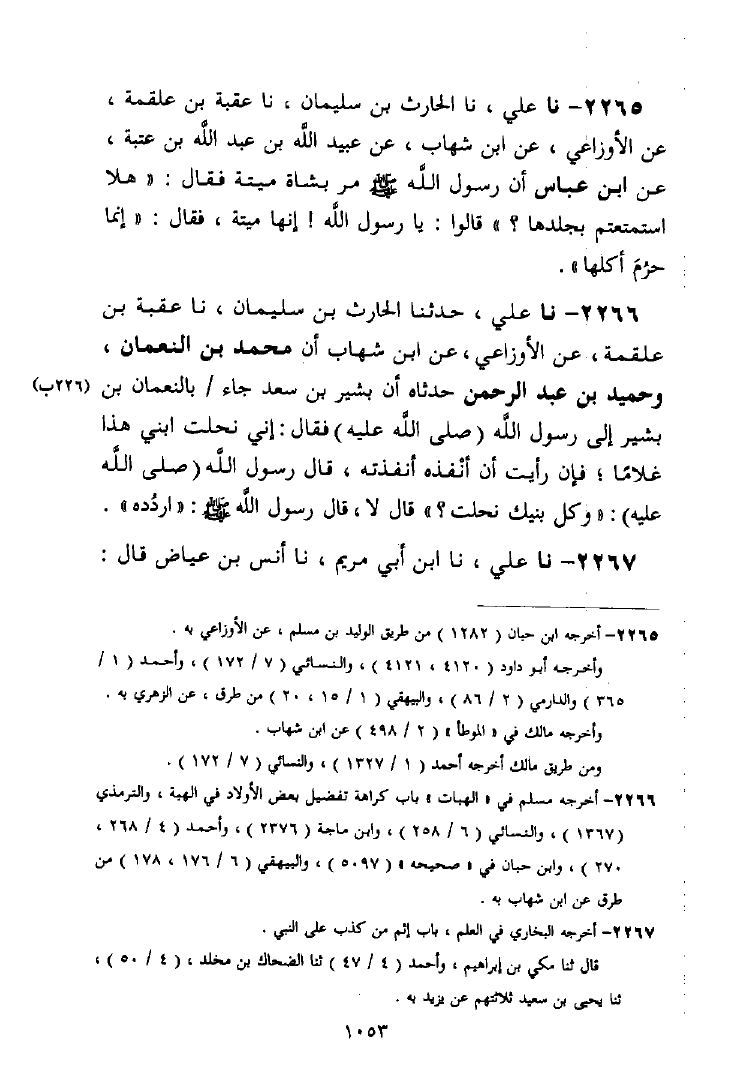 ٢٢٦٥- نا علي ، نا الحارث بن سليمان ، نا عقبة بن علقمة ،
عن الأوزاعي ، عن ابن شهاب ، عن عبيد الله بن عبد الله بن عتبة ،
عن ابن عباس أن رسول الله ﷺ مر بشاة ميتة فقال : « هلا
استمتعتم بجلدها ؟ » قالوا : يا رسول الله ! إنها ميتة ، فقال : « إنما
حرُمَ أكلها » .
٢٢٦٦- نا علي ، حدثنا الحارث بن سليمان ، نا عقبة بن
علقمة ، عن الأوزاعي ، عن ابن شهاب أن محمد بن النعمان ،
وحميد بن عبد الرحمن حدثاه أن بشير بن سعد جاء / بالنعمان بن (٢٢٦ب)
بشير إلى رسول الله (صلى الله عليه) فقال : إني نحلت ابني هذا
غلامًا ؛ فإن رأيت أن أنْفذه أنفذته ، قال رسول الله (صلى الله
عليه) : « وكل بنيك نحلت ؟ » قال لا ، قال رسول الله ﷺ : « اردُده » .
٢٢٦٧- نا علي ، نا ابن أبي مريم ، نا أنس بن عياض قال :
٢٢٦٥- أخرجه ابن حبان ( ١٢٨٢ ) من طريق الوليد بن مسلم ، عن الأوزاعي به .
وأخرجه أبو داود ( ٤١٢٠ ، ٤١٢١ ) ، والنسائي ( ٧ / ١٧٢ ) ، وأحمد ( ١ /
٣٦٥ ) والدارمي ( ٢ / ٨٦ ) ، والبيهقي ( ١ / ١٥ ، ٢٠ ) من طرق ، عن الزهري به .
وأخرجه مالك في « الموطأ » ( ٢ / ٤٩٨ ) عن ابن شهاب .
ومن طريق مالك أخرجه أحمد ( ١ / ١٣٢٧ ) ، والنسائي ( ٧ / ١٧٢ ) .
٢٢٦٦- أخرجه مسلم في « الهبات » باب كراهة تفضيل بعض الأولاد في الهبة ، والترمذي
(١٣٦٧ ) ، والنسائي ( ٦ / ٢٥٨ ) ، وابن ماجة ( ٢٣٧٦ ) ، وأحمد ( ٤ / ٢٦٨ ،
٢٧٠ ) ، وابن حبان في « صحيحه » ( ٥٠٩٧ ) ، والبيهقي ( ٦ / ١٧٦ ، ١٧٨ ) من
طرق عن ابن شهاب به .
٢٢٦٧- أخرجه البخاري في العلم ، باب إثم من كذب على النبي .
قال ثنا مكي بن إبراهيم ، وأحمد ( ٤ / ٤٧ ) ثنا الضحاك بن مخلد ، ( ٤ / ٥٠ ) ،
ثنا يحيى بن سعيد ثلاثتهم عن يزيد به .
١٠٥٣